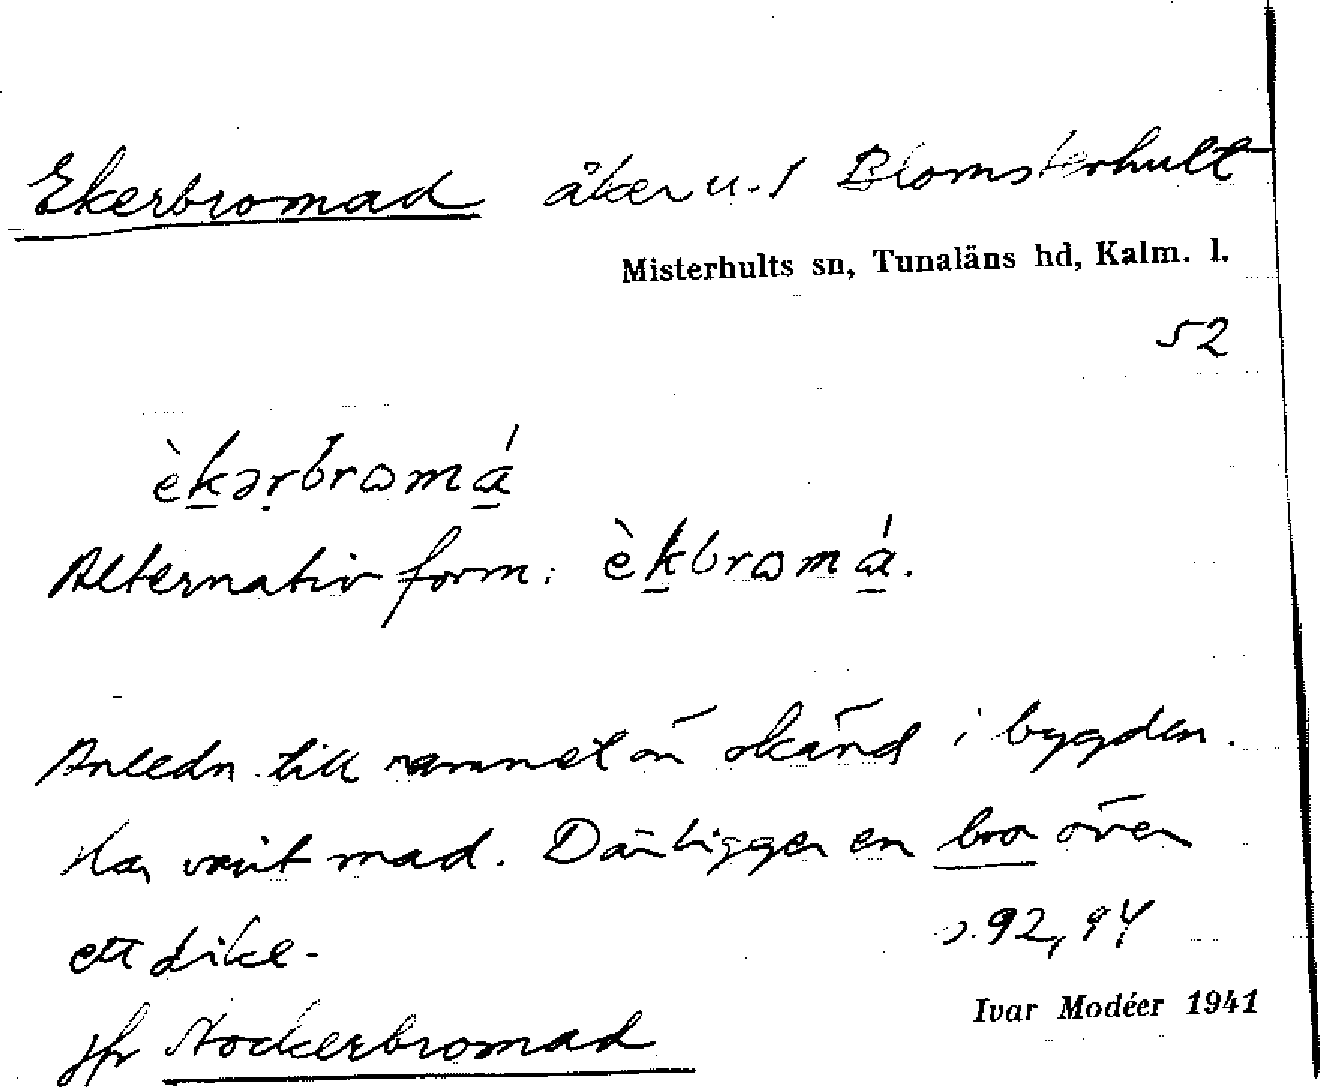 Ekerbromad åker u. / Blomsterhult
Misterhults sn, Tunaläns hd, Kalm. l.
52
èkərbrωmá
Alternativ form: èkbrωmá.
Anledn. till namnet är okänd i bygden.
Har varit mad. Där ligger en bro över
ett dike.
s. 92, 94
Ivar Modéer 1941
jfr Stockerbromad